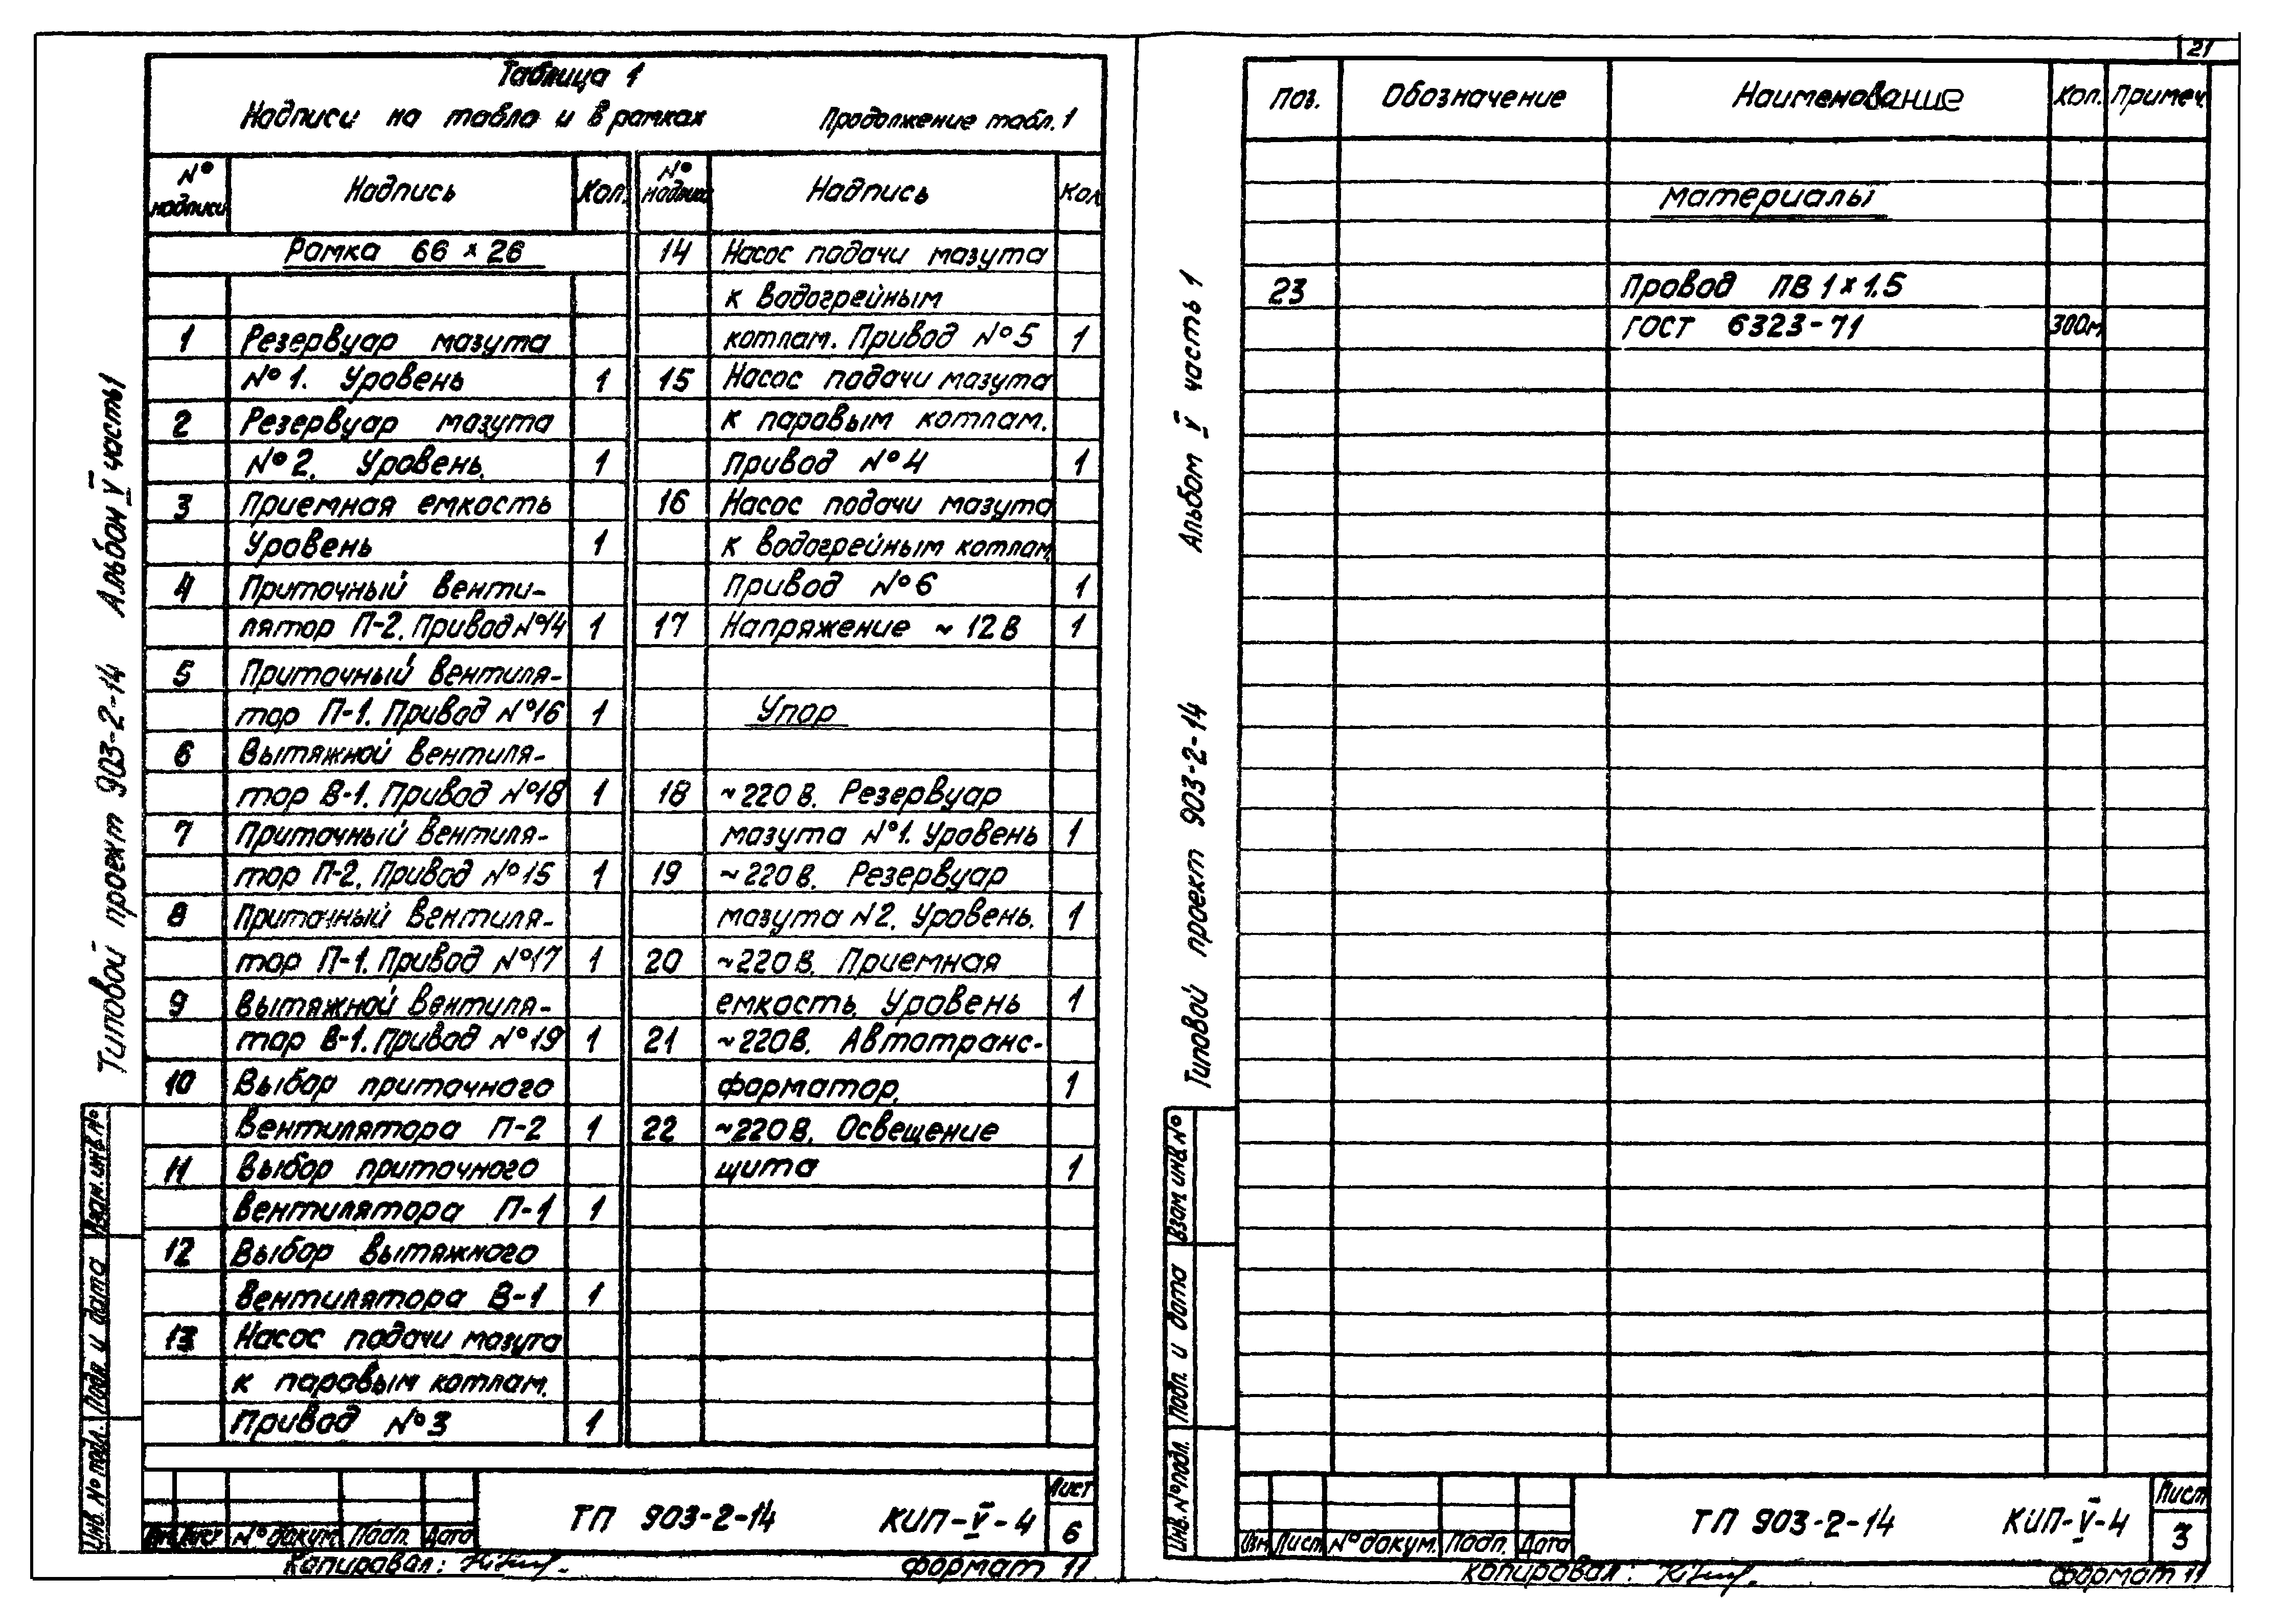 21
Таблица 1
Надписи на табло и в рамках
Продолжение табл. 1
№ надписи Надпись Кол.
Рамка 66 × 26
1 Резервуар мазута
№1. Уровень 1
2 Резервуар мазута
№2. Уровень. 1
3 Приемная емкость
Уровень 1
4 Приточный венти-
лятор П-2. Привод №14 1
5 Приточный вентиля-
тор П-1. Привод №16 1
6 Вытяжной вентиля-
тор В-1. Привод №18 1
7 Приточный вентиля-
тор П-2. Привод №15 1
8 Приточный вентиля-
тор П-1. Привод №17 1
9 Вытяжной вентиля-
тор В-1. Привод №19 1
10 Выбор приточного
вентилятора П-2 1
11 Выбор приточного
вентилятора П-1 1
12 Выбор вытяжного
вентилятора В-1 1
13 Насос подачи мазута
к паровым котлам.
Привод №3 1
№ надписи Надпись Кол
14 Насос подачи мазута
к водогрейным
котлам. Привод №5 1
15 Насос подачи мазута
к паровым котлам.
Привод №4 1
16 Насос подачи мазута
к водогрейным котлам.
Привод №6 1
17 Напряжение ~ 12В 1
Упор
18 ~220 В. Резервуар
мазута №1. Уровень 1
19 ~220 В. Резервуар
мазута N2. Уровень. 1
20 ~220 В. Приемная
емкость. Уровень 1
21 ~220В. Автотранс-
форматор. 1
22 ~220 В. Освещение
щита 1
Типовой проект 903-2-14 Альбом V часть 1
Взам. инв. №
Подп. и дата
Инв. № подл.
Изм Лист № докум. Подп. Дата
ТП 903-2-14 КИП-V-4
Лист
6
Копировал:
Формат 11
Поз. Обозначение Наименование Кол. Примеч.
Материалы
23 Провод ПВ 1×1.5
ГОСТ 6323-71 300м
Типовой проект 903-2-14 Альбом V часть 1
Взам инв. №
Подп. и дата
Инв. № подл.
Изм Лист № докум. Подп. Дата
ТП 903-2-14 КИП-V-4
Лист
3
Копировал:
Формат 11